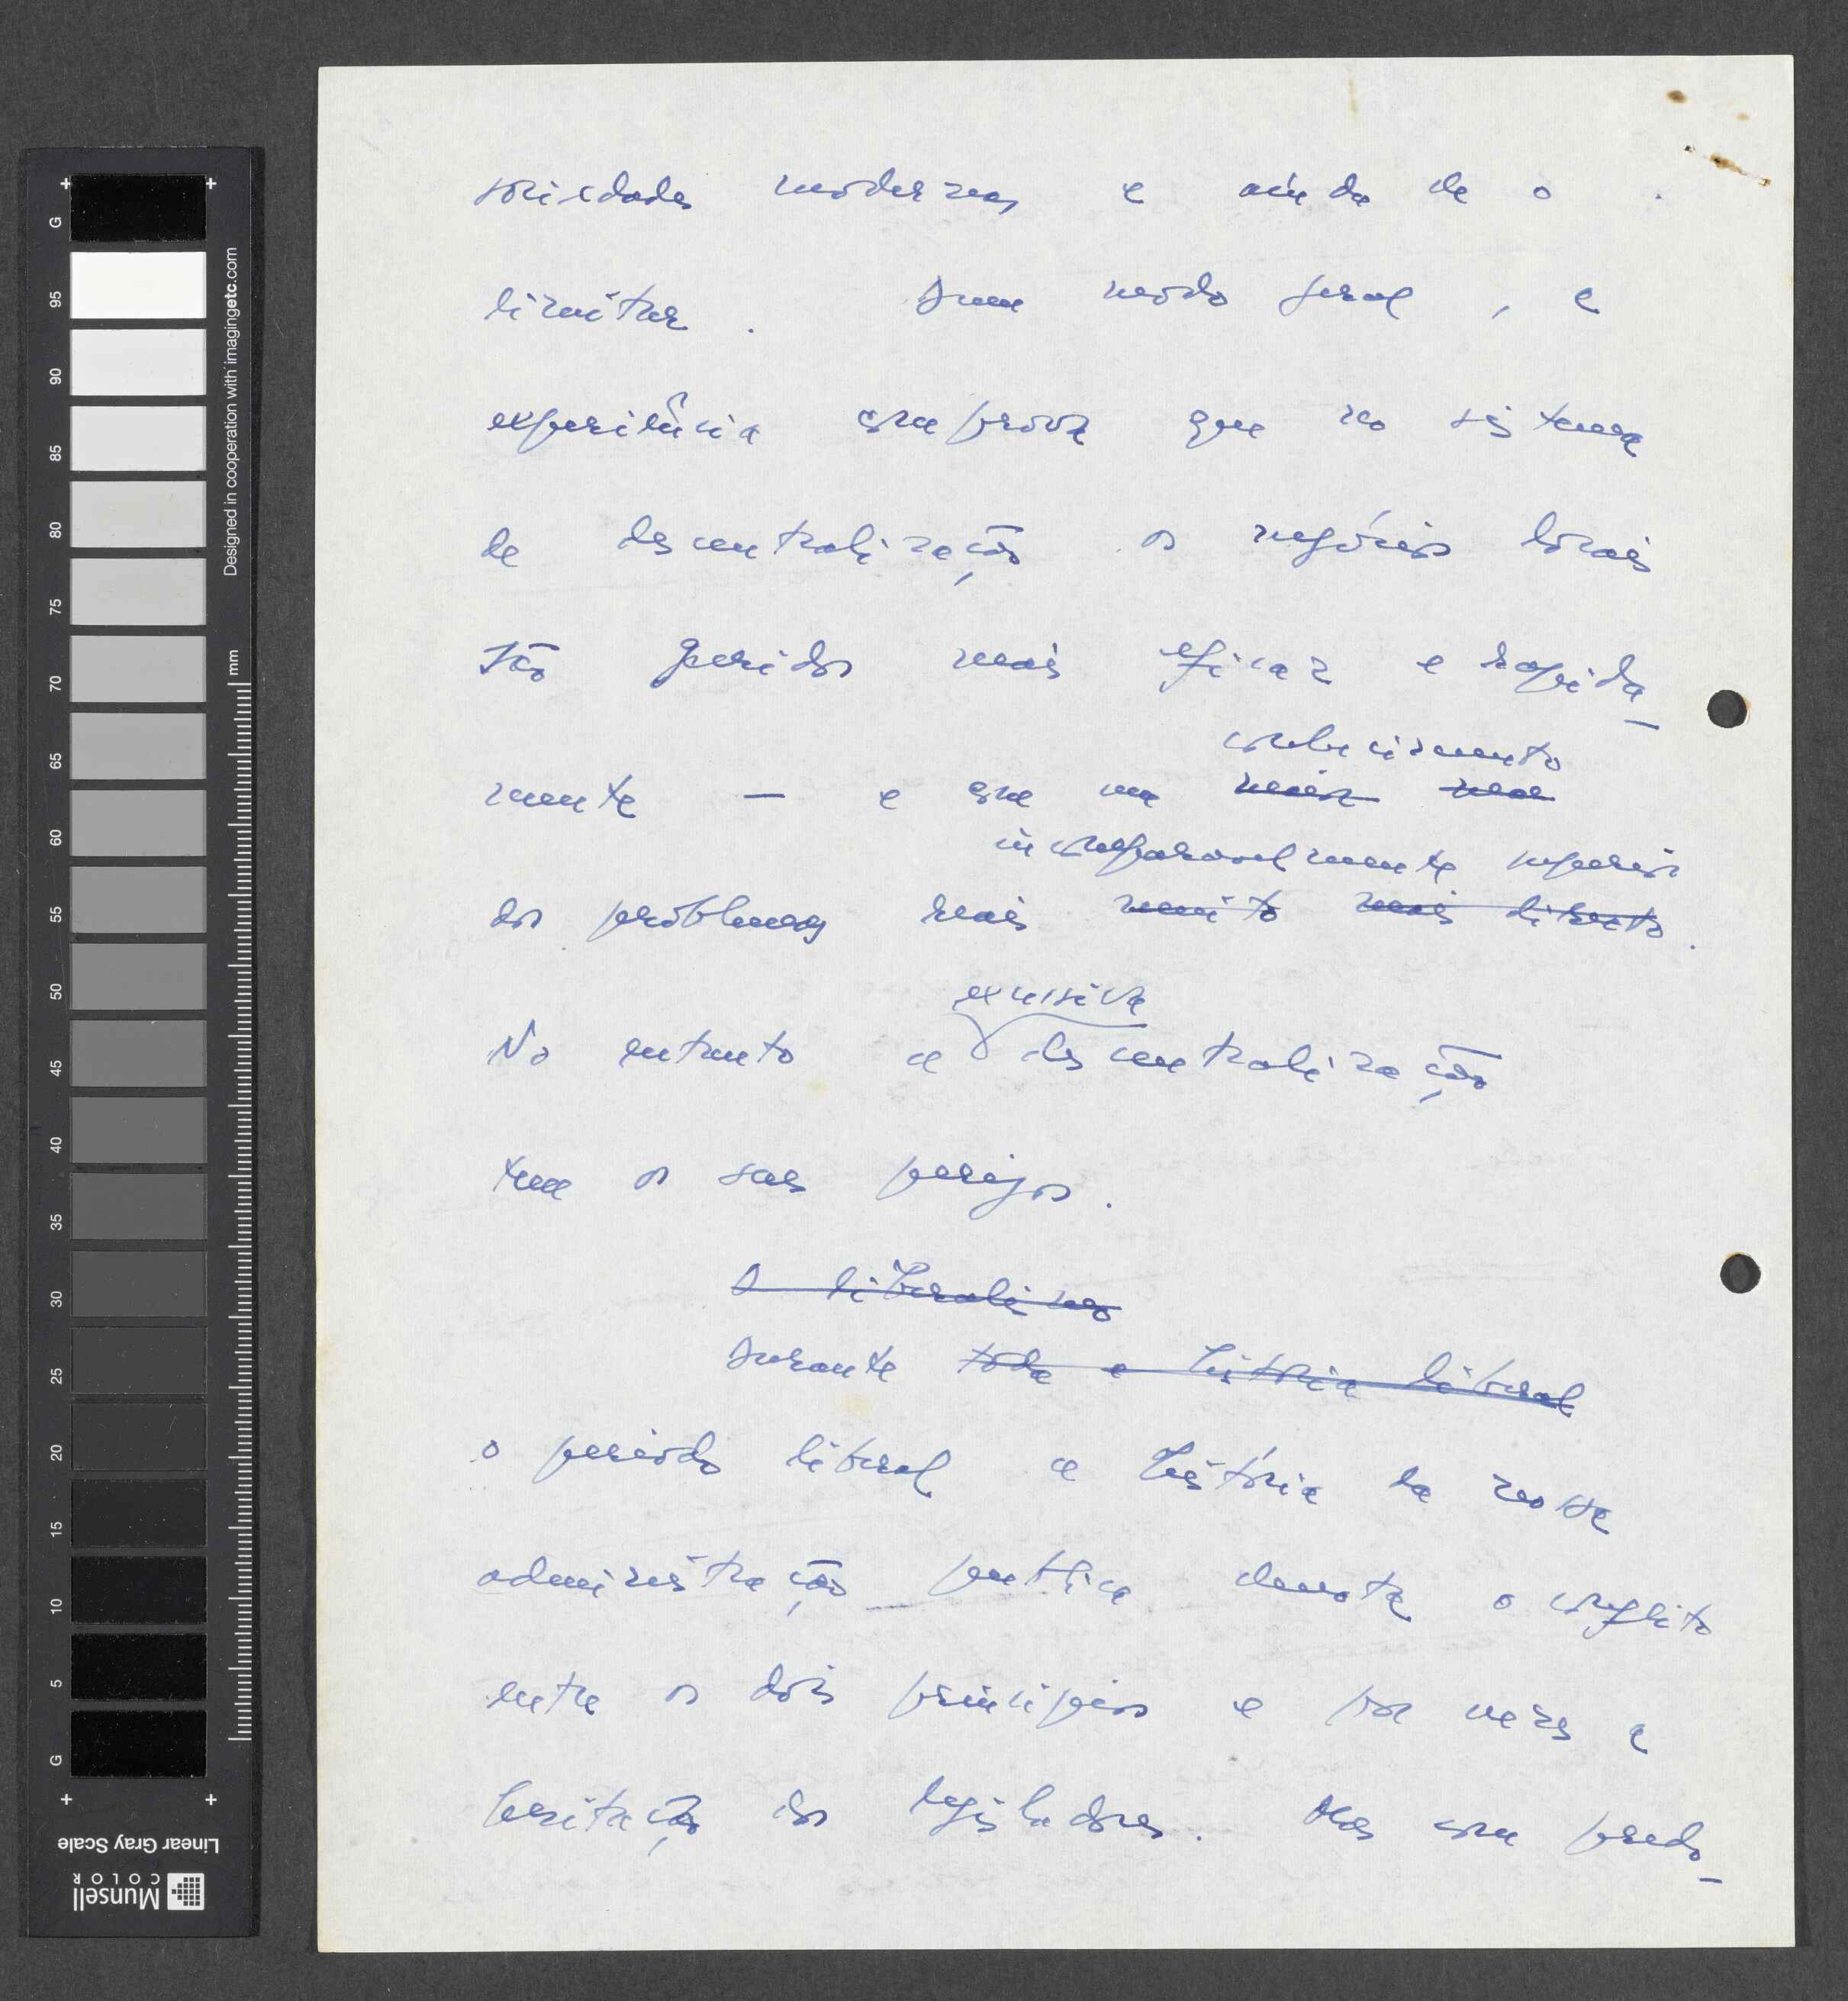 sociedades modernas e ainda de o
limitar. Dum modo geral, a
experiência comprova que no sistema
de descentralização os negócios locais
são geridos mais eficaz e rapida-
conhecimento
mente — e com um
incomparavelmente superior
dos problemas reais muito mais directo.
excessiva
No entanto a descentralização
tem os seus perigos.
O liberalismo
Durante toda a história liberal
o período liberal a história da nossa
administração publica denota o conflito
entre os dois principios e por vezes a
hesitação dos legisladores. Mas com predo-
G 95 90 85 80 75 70 65 60 55 50 45 40 35 30 25 20 15 10 5 G
mm
Designed in cooperation with imagingetc.com
Linear Gray Scale
Munsell
COLOR